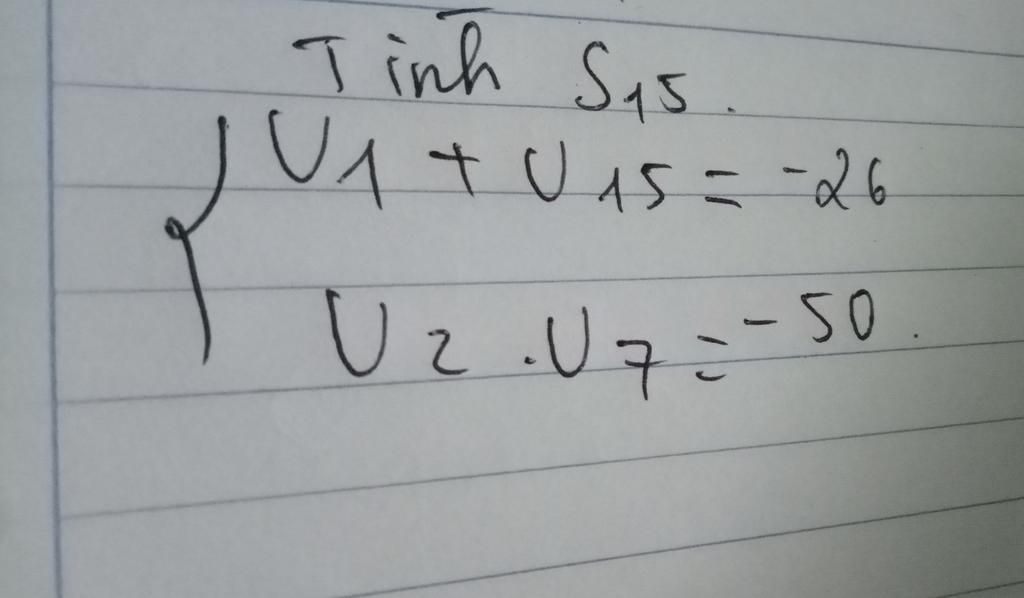 Tính S15.
U1 + U15 = -26
U2 . U7 = -50.